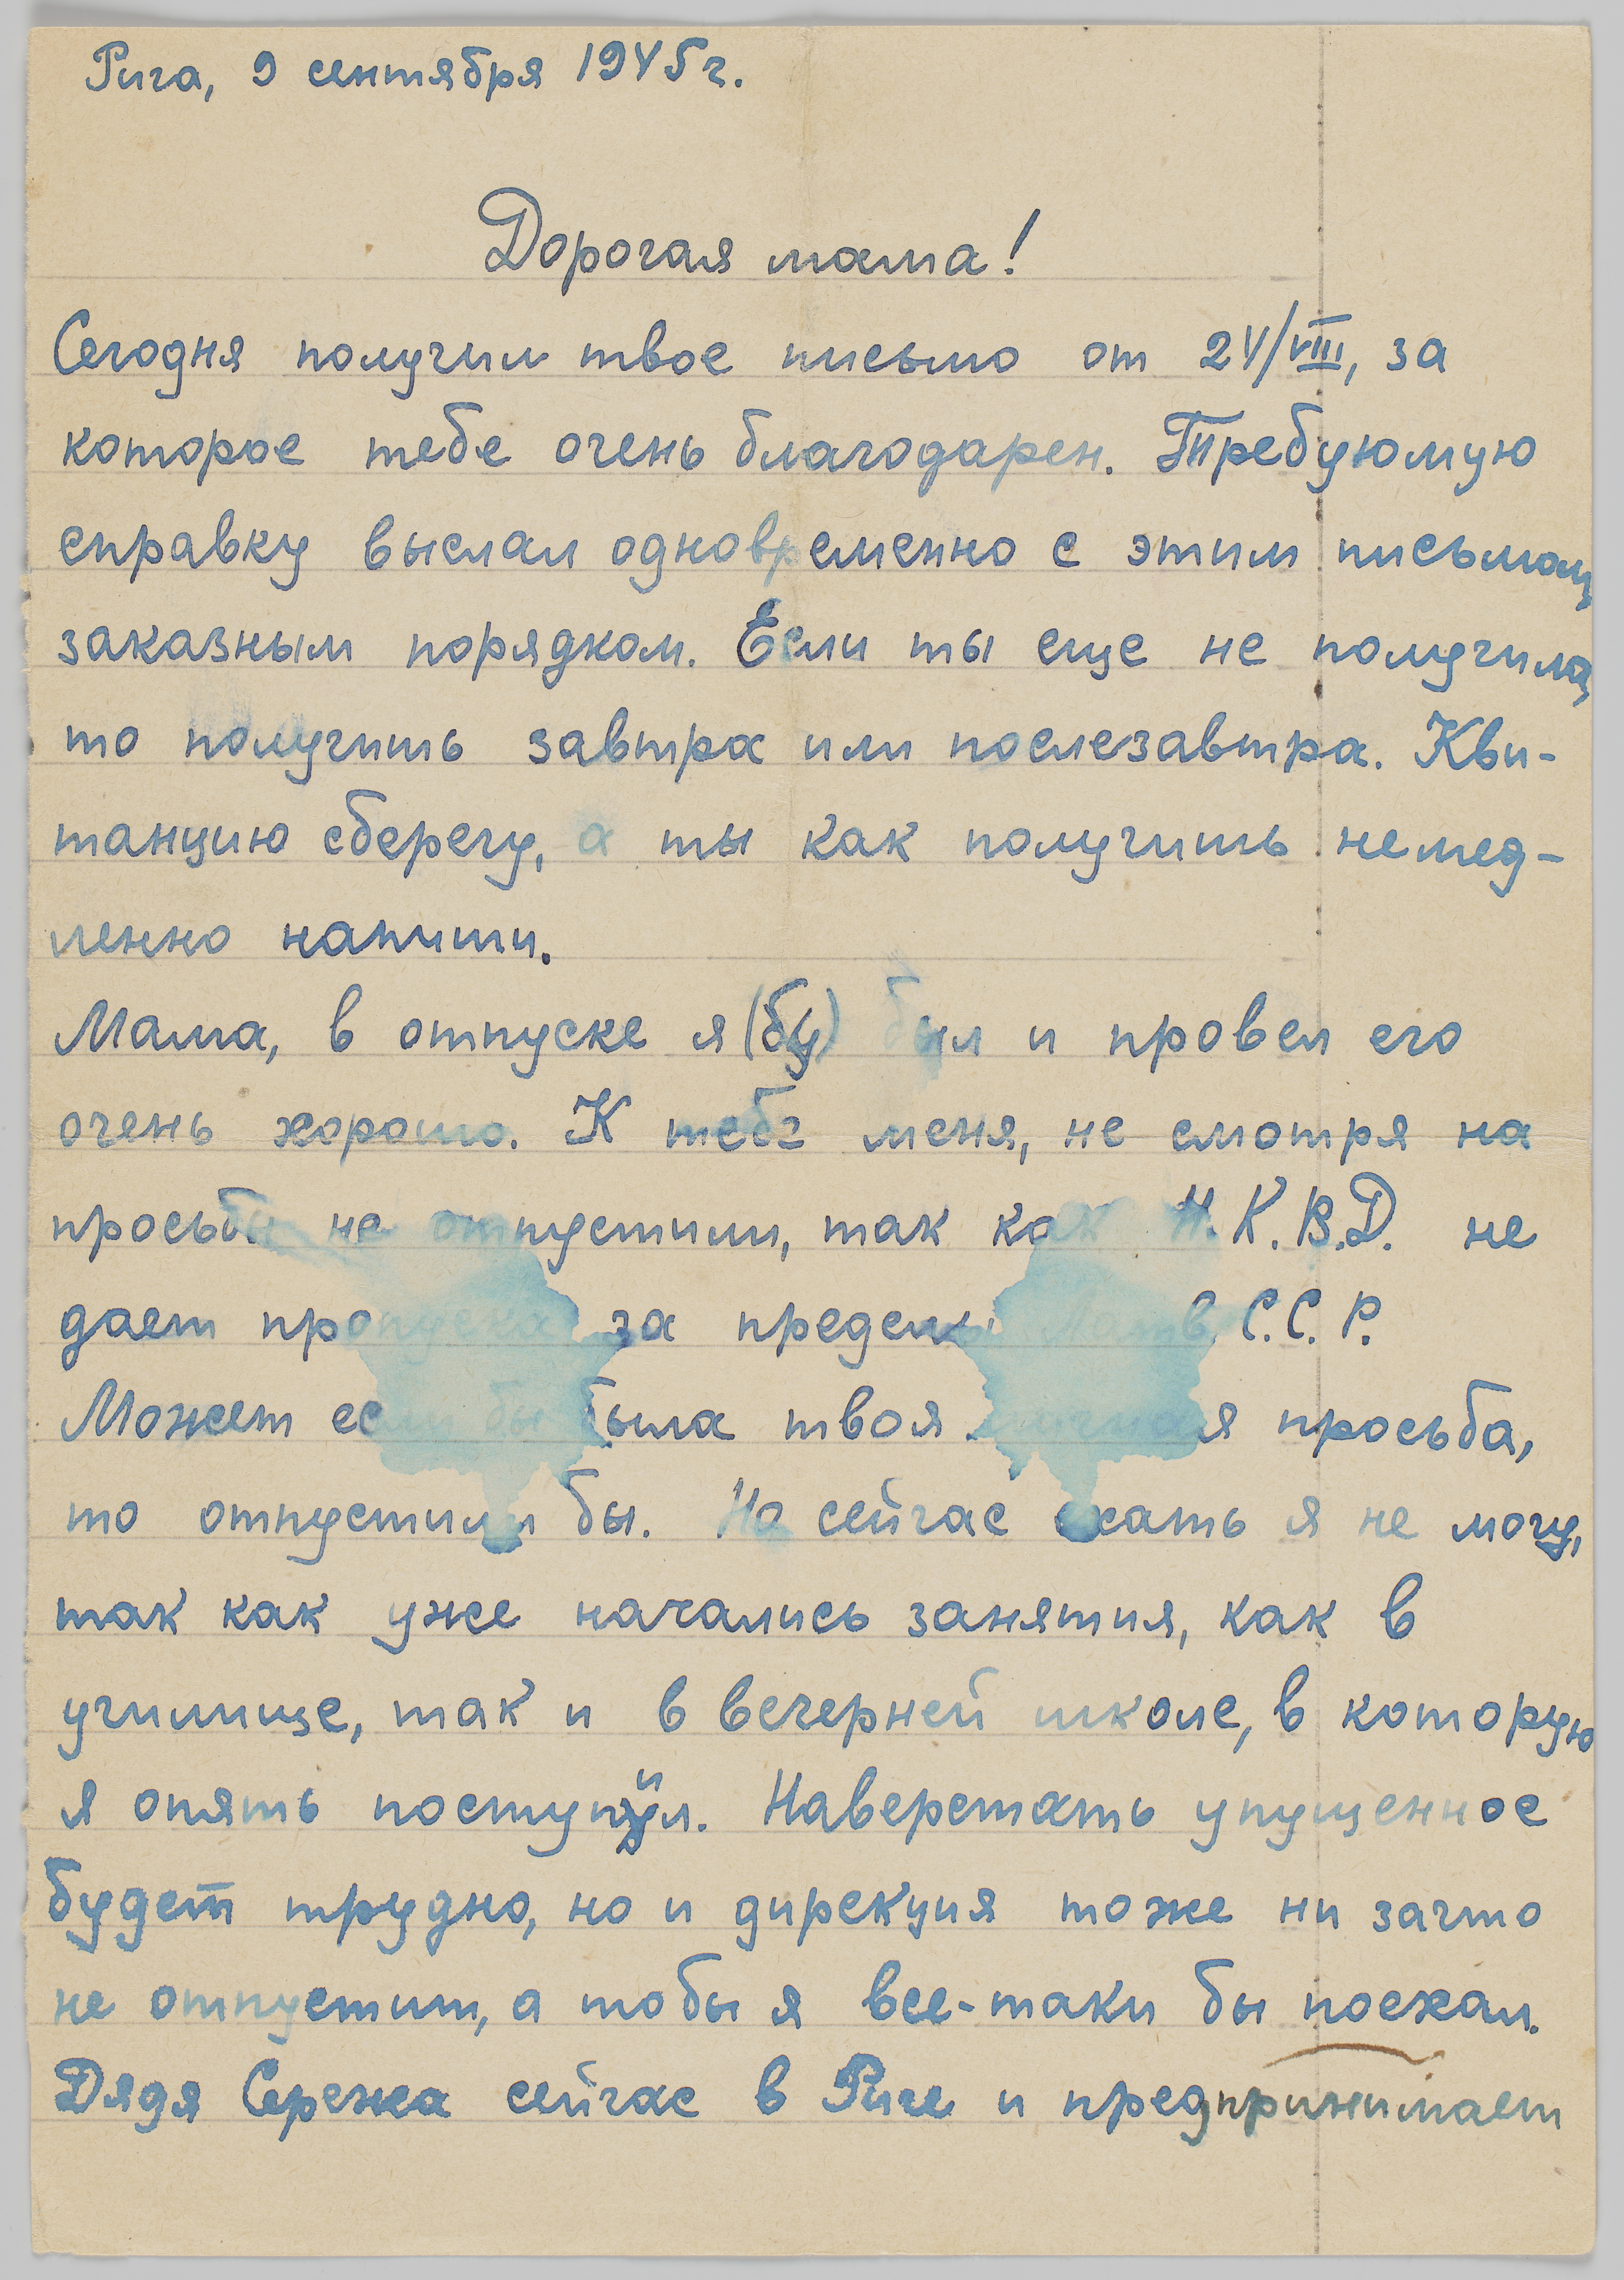 Рига, 9 сентября 1945 г.
Дорогая мама!
Сегодня получил твое письмо от 24/VIII, за
которое тебе очень благодарен. Требуюмую
справку выслал одновременно с этим письмом,
заказным порядком. Если ты еще не получила,
то получишь завтра или послезавтра. Кви-
танцию сберегу, а ты как получишь немед-
ленно напиши.
Мама, в отпуске я (бу) был и провел его
очень хорошо. К тебе меня, не смотря на
просьбы не отпустили, так как Н.К.В.Д. не
дает пропуска за пределы Латв. С.С.Р.
Может если бы была твоя личная просьба,
то отпустили бы. Но сейчас ехать я не могу,
так как уже начались занятия, как в
училище, так и в вечерней школе, в которую
я опять поступил. Наверстать упущенное
будет трудно, но и дирекция тоже ни зачто
не отпустит, а тобы я все-таки бы поехал.
Дядя Сережа сейчас в Риге и предпринимает